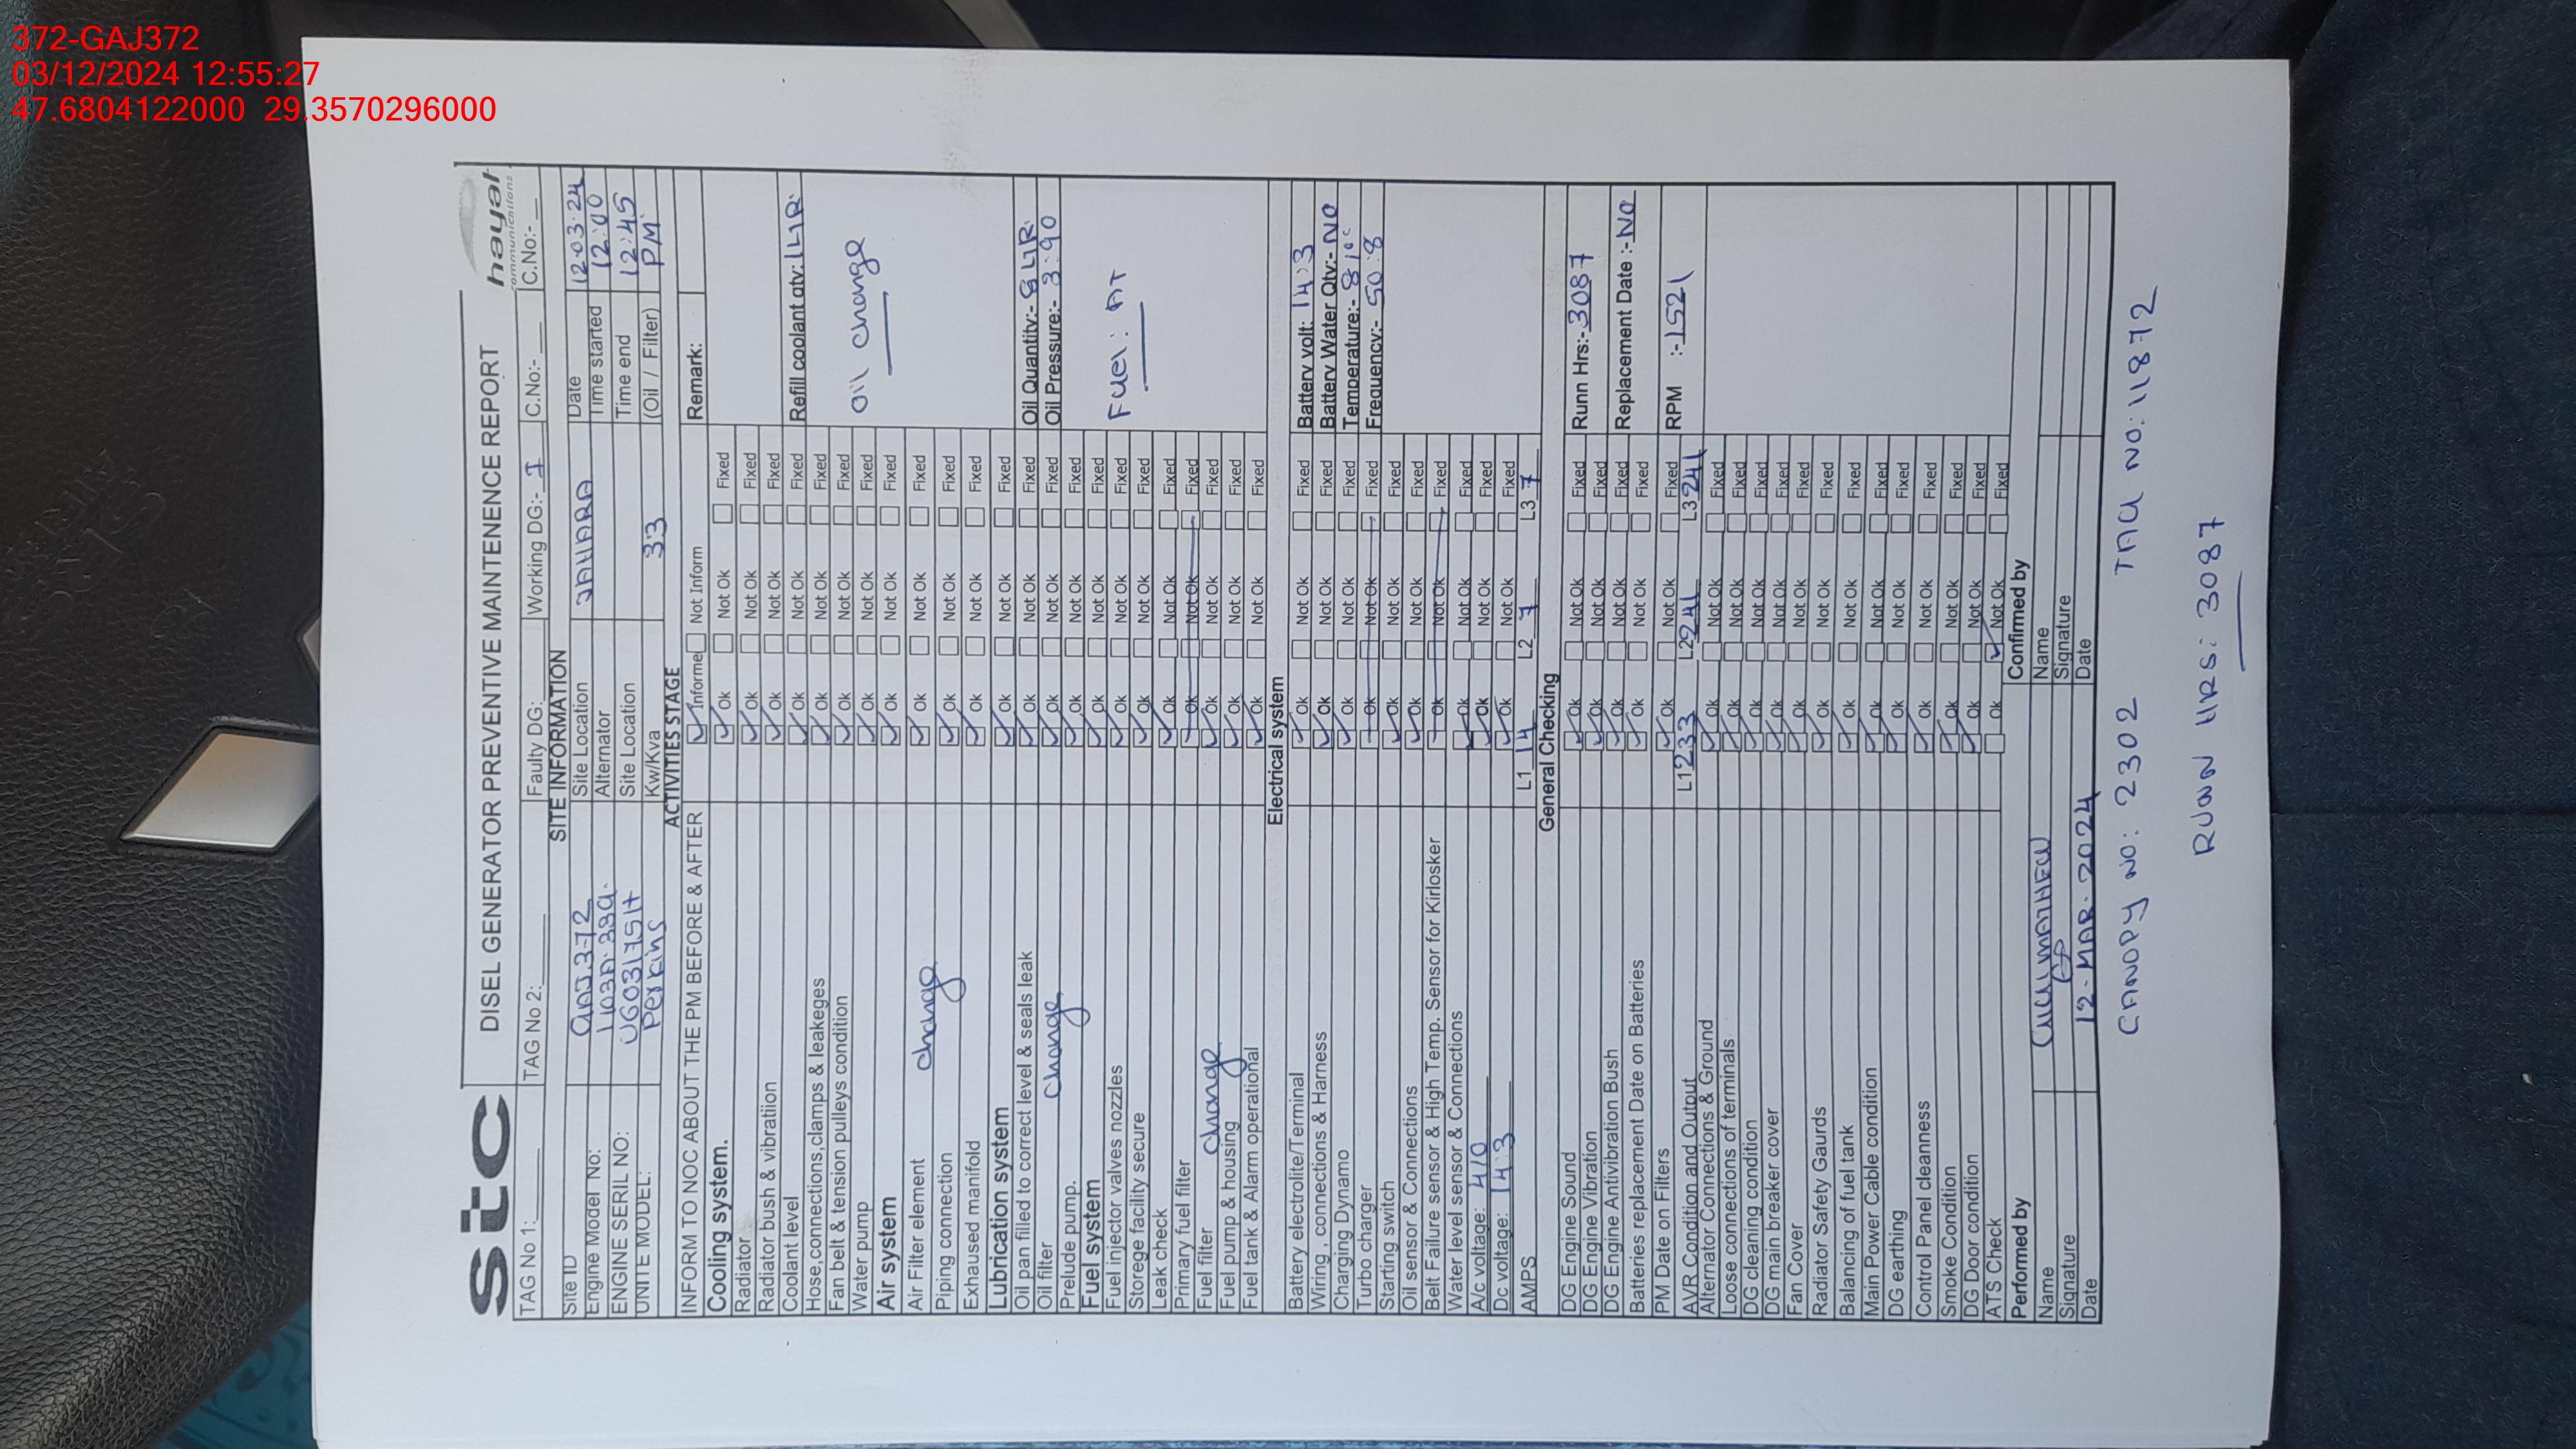 372-GAJ372
03/12/2024 12:55:27
47.6804122000 29.3570296000
stc DISEL GENERATOR PREVENTIVE MAINTENENCE REPORT hayat communications
TAG No 1: TAG No 2: Faulty DG: Working DG:- I C.No:- C.No:-
SITE INFORMATION
Site ID GAJ372 Site Location JAHARA Date 12.03.24
Engine Model No: 1103A.33G. Alternator Time started 12:00
ENGINE SERIL NO: Site Location Time end 12:45
UNITE MODEL: Perkins Kw/Kva 33 (Oil / Filter) PM.
ACTIVITIES STAGE
INFORM TO NOC ABOUT THE PM BEFORE & AFTER Informe Not Inform Remark:
Cooling system.
Radiator Ok Not Ok Fixed
Radiator bush & vibratiion Ok Not Ok Fixed
Coolant level Ok Not Ok Fixed Refill coolant qty: 1 LIR.
Hose,connections,clamps & leakeges Ok Not Ok Fixed
Fan belt & tension pulleys condition Ok Not Ok Fixed
Water pump Ok Not Ok Fixed Oil change
Air system Ok Not Ok Fixed
Air Filter element change Ok Not Ok Fixed
Piping connection Ok Not Ok Fixed
Exhaused manifold Ok Not Ok Fixed
Lubrication system Ok Not Ok Fixed
Oil pan filled to correct level & seals leak Ok Not Ok Fixed Oil Quantity:- 8 LIR.
Oil filter change Ok Not Ok Fixed Oil Pressure:- 3.90
Prelude pump. Ok Not Ok Fixed
Fuel system Ok Not Ok Fixed
Fuel injector valves nozzles Ok Not Ok Fixed Fuel:
Storege facility secure Ok Not Ok Fixed
Leak check Ok Not Ok Fixed
Primary fuel filter Ok Not Ok Fixed
Fuel filter change Ok Not Ok Fixed
Fuel pump & housing Ok Not Ok Fixed
Fuel tank & Alarm operational Ok Not Ok Fixed
Electrical system
Battery electrolite/Terminal Ok Not Ok Fixed Battery volt: 14.3
Wiring , connections & Harness Ok Not Ok Fixed Battery Water Qty:- NO
Charging Dynamo Ok Not Ok Fixed Temperature:- 81°c
Turbo charger Ok Not Ok Fixed Frequency:- 50.8
Starting switch Ok Not Ok Fixed
Oil sensor & Connections Ok Not Ok Fixed
Belt Failure sensor & High Temp. Sensor for Kirlosker Ok Not Ok Fixed
Water level sensor & Connections Ok Not Ok Fixed
A/c voltage: 410 Ok Not Ok Fixed
Dc voltage: 14.3 Ok Not Ok Fixed
AMPS L1 14 L2 7 L3 7
General Checking
DG Engine Sound Ok Not Ok Fixed Runn Hrs:- 3087
DG Engine Vibration Ok Not Ok Fixed
DG Engine Antivibration Bush Ok Not Ok Fixed Replacement Date :- NO
Batteries replacement Date on Batteries Ok Not Ok Fixed
PM Date on Filters Ok Not Ok Fixed RPM :- 1521
AVR Condition and Output L1 233 L2 241 L3 241
Alternator Connections & Ground Ok Not Ok Fixed
Loose connections of terminals Ok Not Ok Fixed
DG cleaning condiition Ok Not Ok Fixed
DG main breaker cover Ok Not Ok Fixed
Fan Cover Ok Not Ok Fixed
Radiator Safety Gaurds Ok Not Ok Fixed
Balancing of fuel tank Ok Not Ok Fixed
Main Power Cable condition Ok Not Ok Fixed
DG earthing Ok Not Ok Fixed
Control Panel cleanness Ok Not Ok Fixed
Smoke Condition Ok Not Ok Fixed
DG Door condition Ok Not Ok Fixed
ATS Check Ok Not Ok Fixed
Performed by Confirmed by
Name Name
Signature Signature
Date 12-MAR-2024 Date
CANOPY NO: 2302 TAG NO: 11872
RUNN HRS: 3087